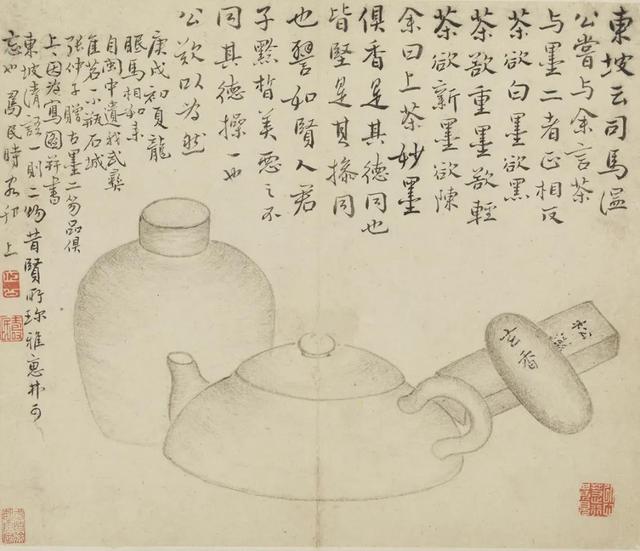 東坡云司馬溫
公嘗与余言茶
与墨二者正相反
茶欲白墨欲黑
茶欲重墨欲輕
茶欲新墨欲陳
余曰上茶妙墨
俱香是其德同也
皆堅是其操同
也譬如賢人君
子黔皙美惡之不
同其德操一也
公歎以為然
庚戌初夏龍
眠馬相如
自閩中遺我武彝
雀茗一小瓶石城
張仲子贈古墨二笏品俱
上因為寫圖并書
東坡清語一則二物昔賢所珍雅惠并可
忘也
古香